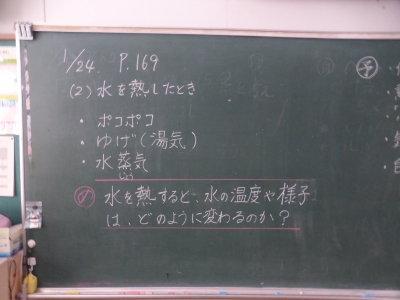 1/24. P.169
(2) 水を熱したとき
・ポコポコ
・ゆげ(湯気)
・水蒸気
じょう
水を熱すると、水の温度や様子
は、どのように変わるのか?
予